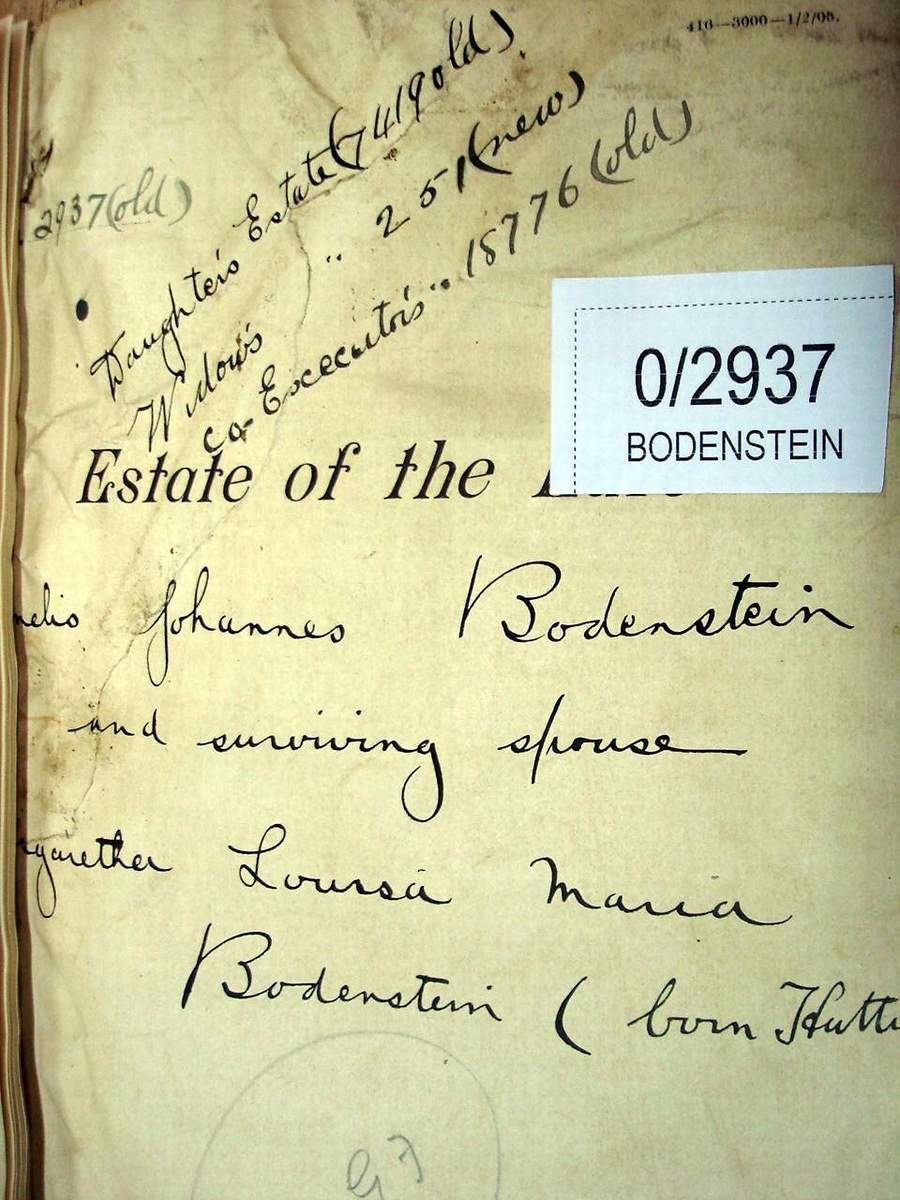 416—3000—1/2/08.
2937 (old)
Daughter's Estate (7419 old).
Widow's " 251 (new)
Co-Excecutor's " 18776 (old)
0/2937
BODENSTEIN
Estate of the
nelis Johannes Bodenstein
and surviving spouse
rgarether Louisa Maria
Bodenstein (born Hutt